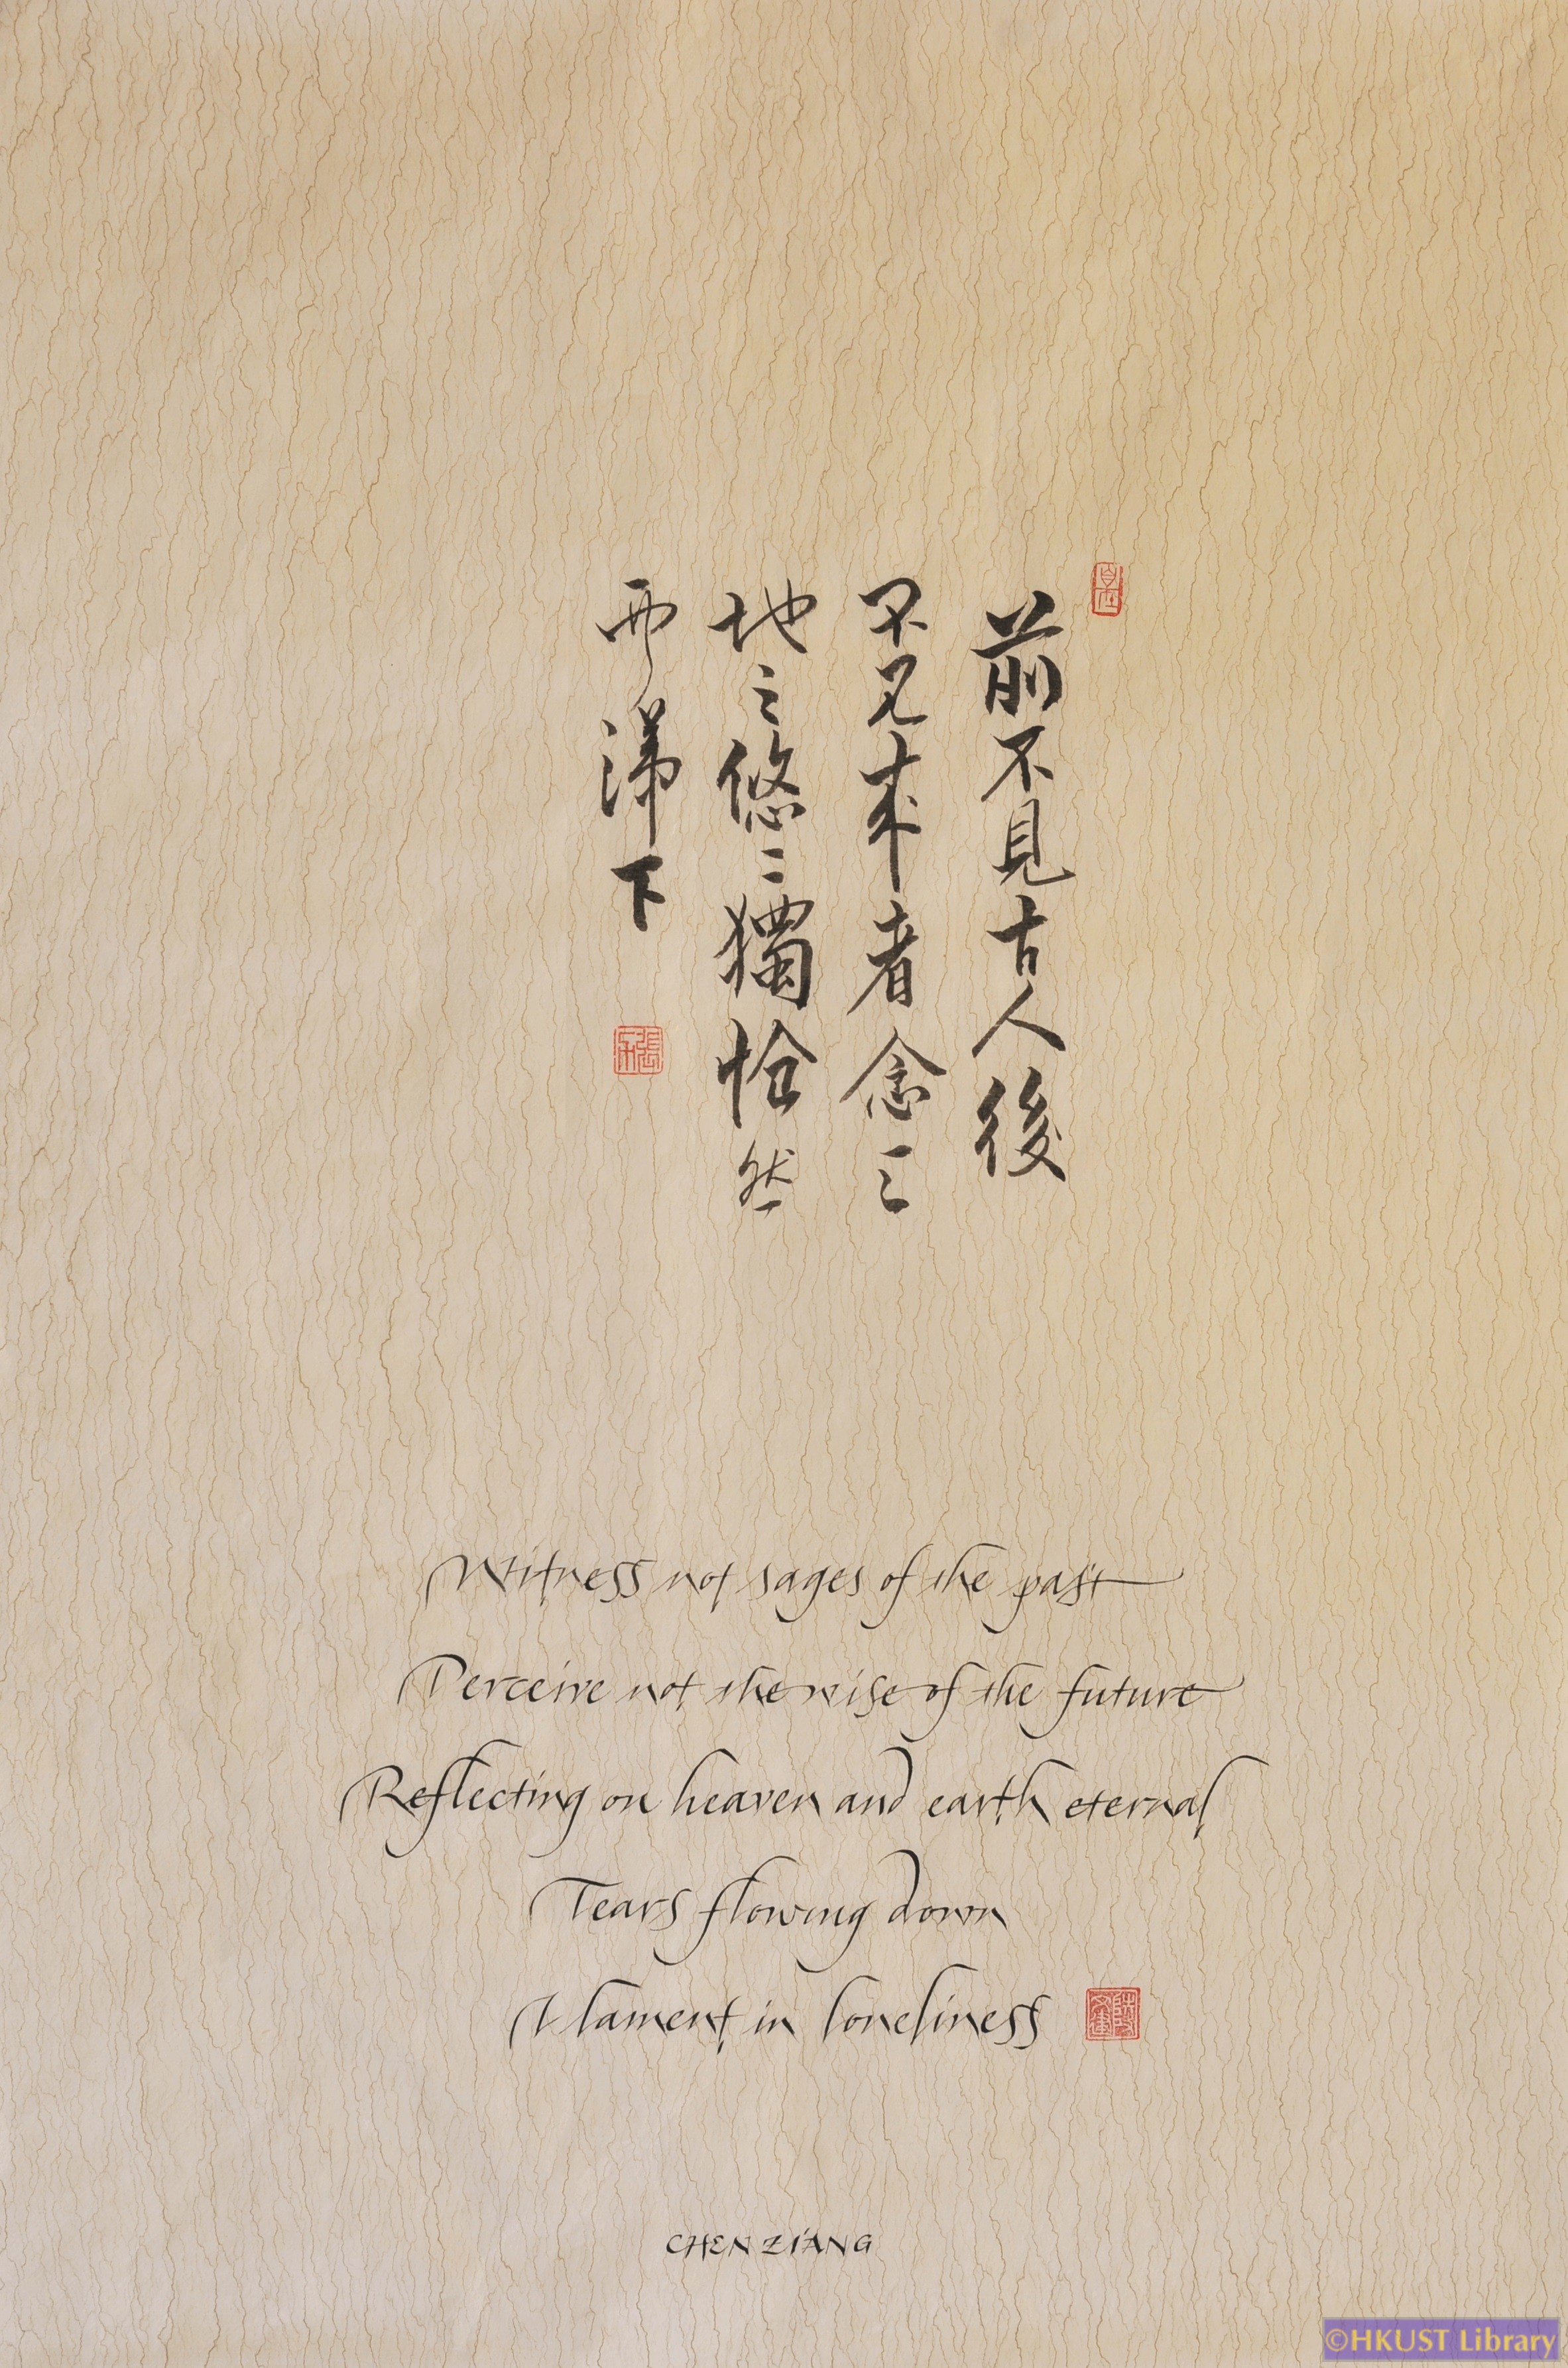 前不見古人後
不見來者念天
地之悠〻獨愴然
而涕下
Witness not sages of the past
Perceive not the wise of the future
Reflecting on heaven and earth eternal
Tears flowing down
I lament in loneliness
CHEN ZI'ANG
©HKUST Library